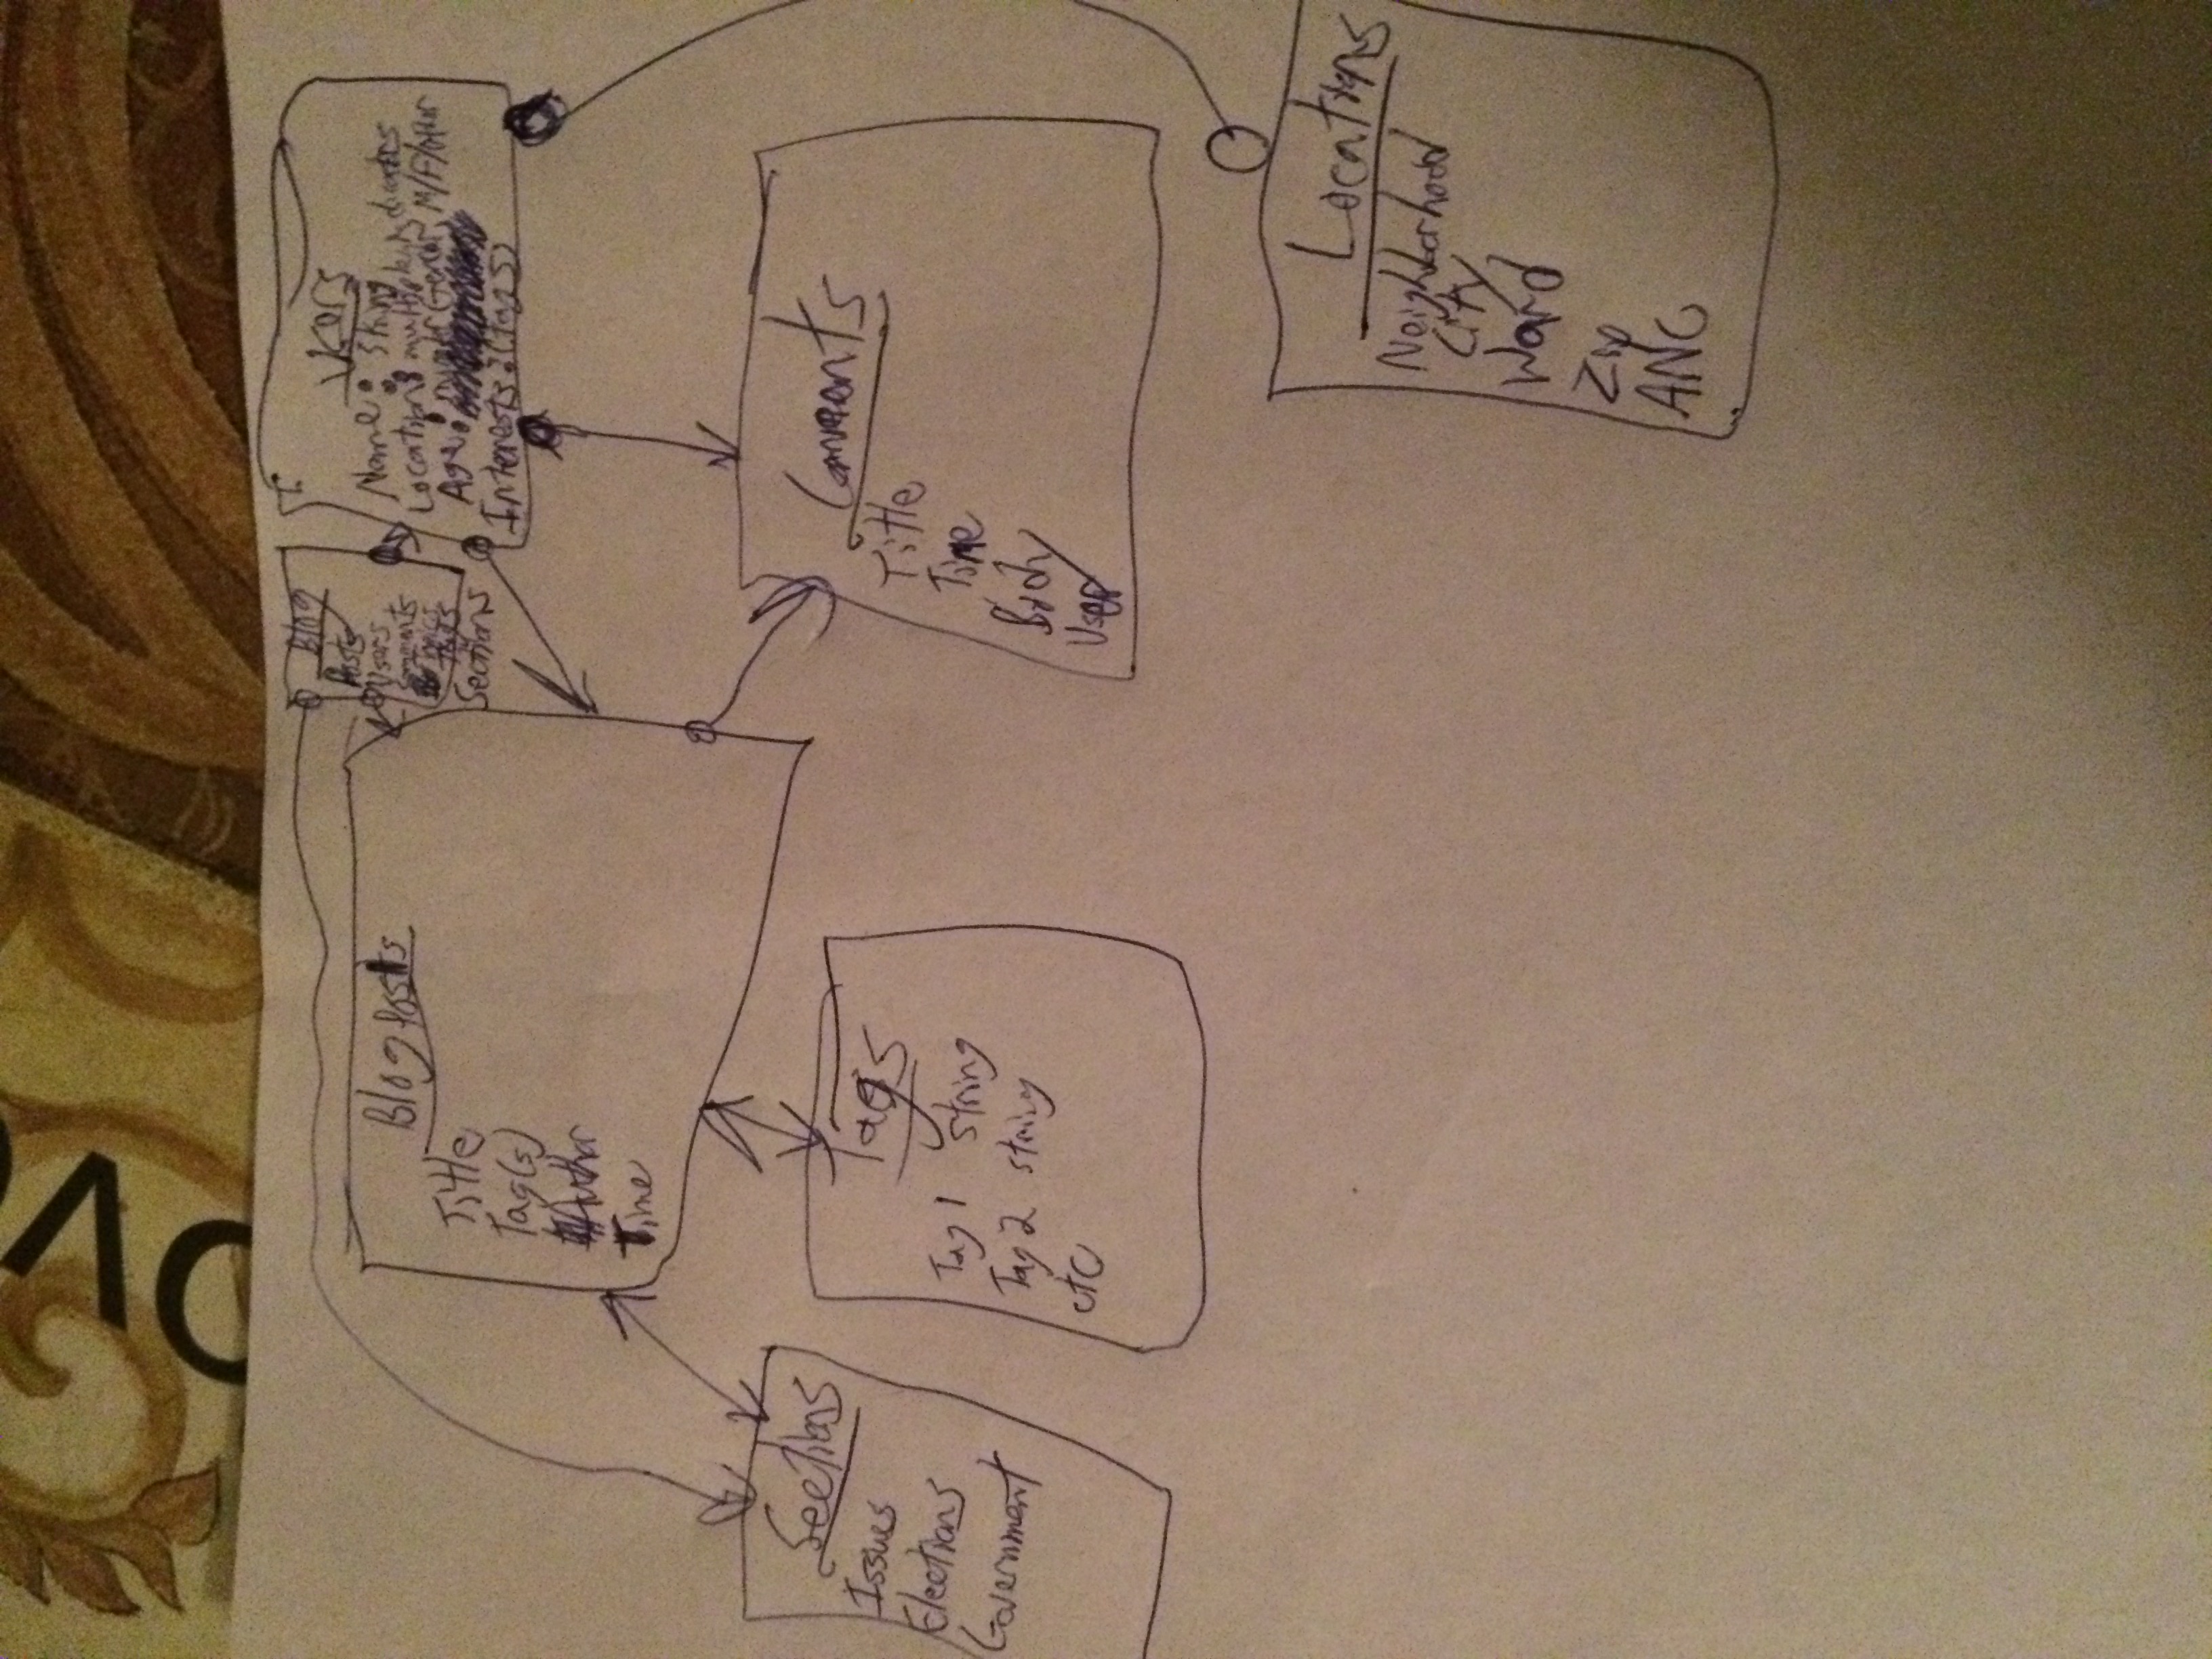 OVO
Blog
Posts
Users
Comments
Topics
Tags
Sections
Users
Name: String
Location: multiple
Age: number Gender, M/F/other
Interests: (tags)
Blog posts
Title
Tag(s)
Author
Time
Sections
Issues
Elections
Government
Tags
Tag 1 string
Tag 2 string
etc
Comments
Title
Time
Body
User
Locations
Neighborhood
City
Ward
Zip
ANC